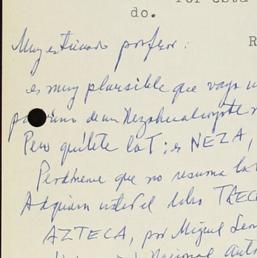 do.
R
Muy estimado profesor:
es muy plausible que vaya u
de un Nezahualcoyotl
Pero quítele la T: es NEZA,
Perdóneme que no resuma la
Adquiera usted el libro TREC
AZTECA, por Miguel León
Nacional Autó